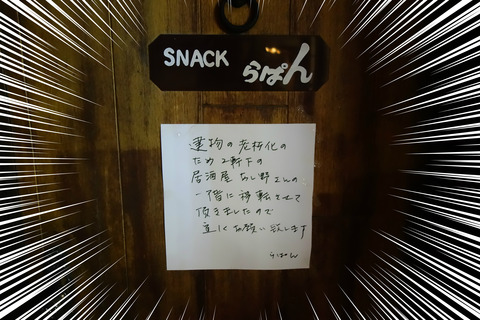 SNACK らぱん
建物の老朽化の
ため2軒下の
居酒屋あし野さんの
一階に移転させて
頂きましたので
宜しくお願い致します
らぱん